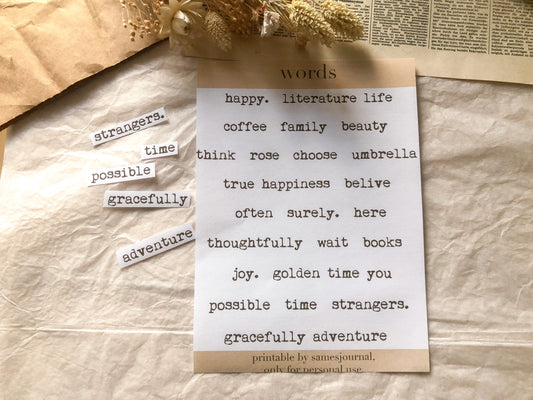 words
happy. literature life
coffee family beauty
think rose choose umbrella
true happiness belive
often surely. here
thoughtfully wait books
joy. golden time you
possible time strangers.
gracefully adventure
printable by samesjournal,
only for personal use.
strangers.
time
possible
gracefully
adventure